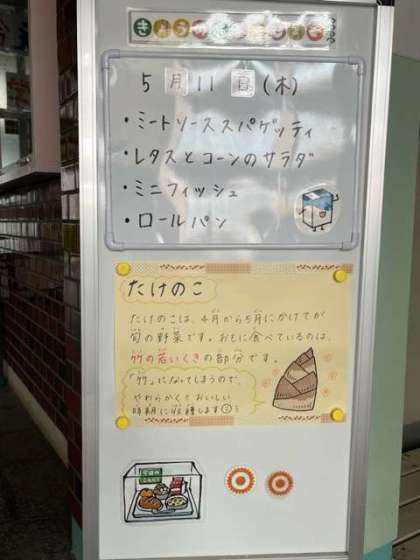 きょうの
5月11日(木)
・ミートソーススパゲッティ
・レタスとコーンのサラダ
・ミニフィッシュ
・ロールパン
たけのこ
たけのこは、4月から5月にかけてが
旬の野菜です。おもに食べているのは、
竹の若いくきの部分です。
「竹」になってしまうので、
やわらかくておいしい
時期に収穫します